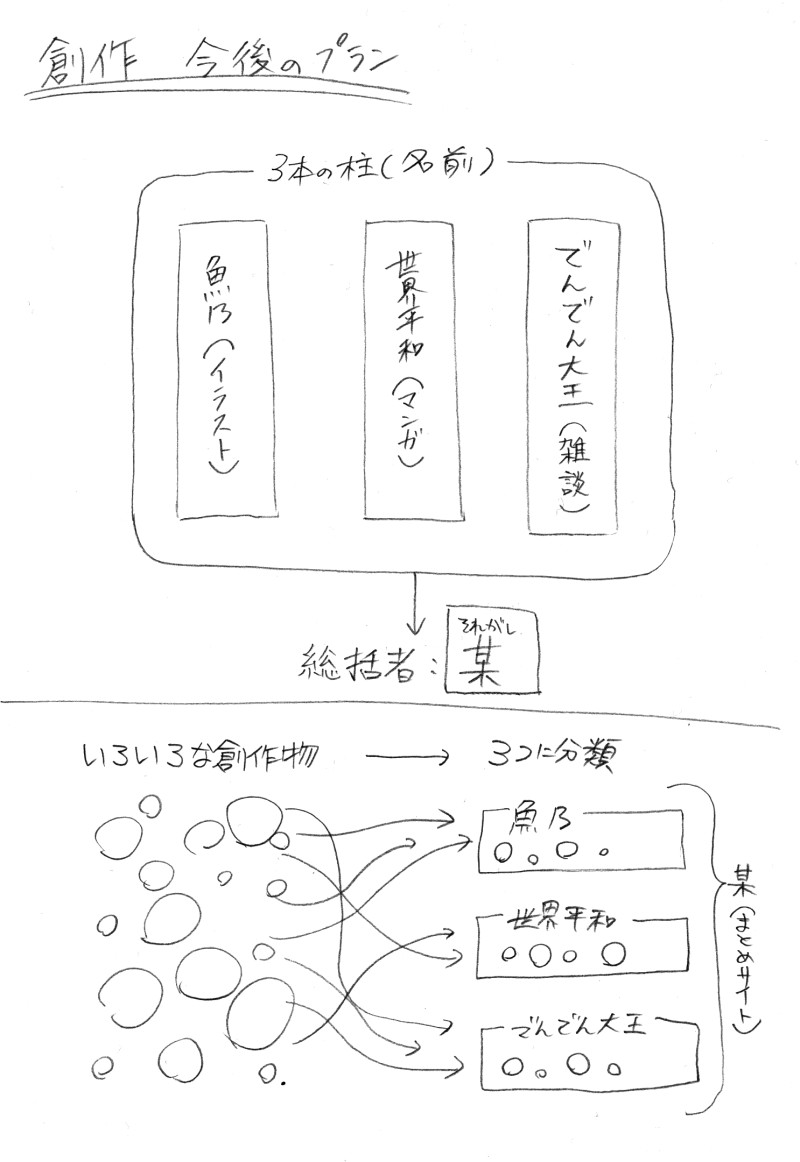 創作 今後のプラン
3本の柱(名前)
魚乃(イラスト)
世界平和(マンガ)
でんでん大王(雑談)
総括者:某
それがし
いろいろな創作物 → 3つに分類
魚乃
世界平和
でんでん大王
某(まとめサイト)